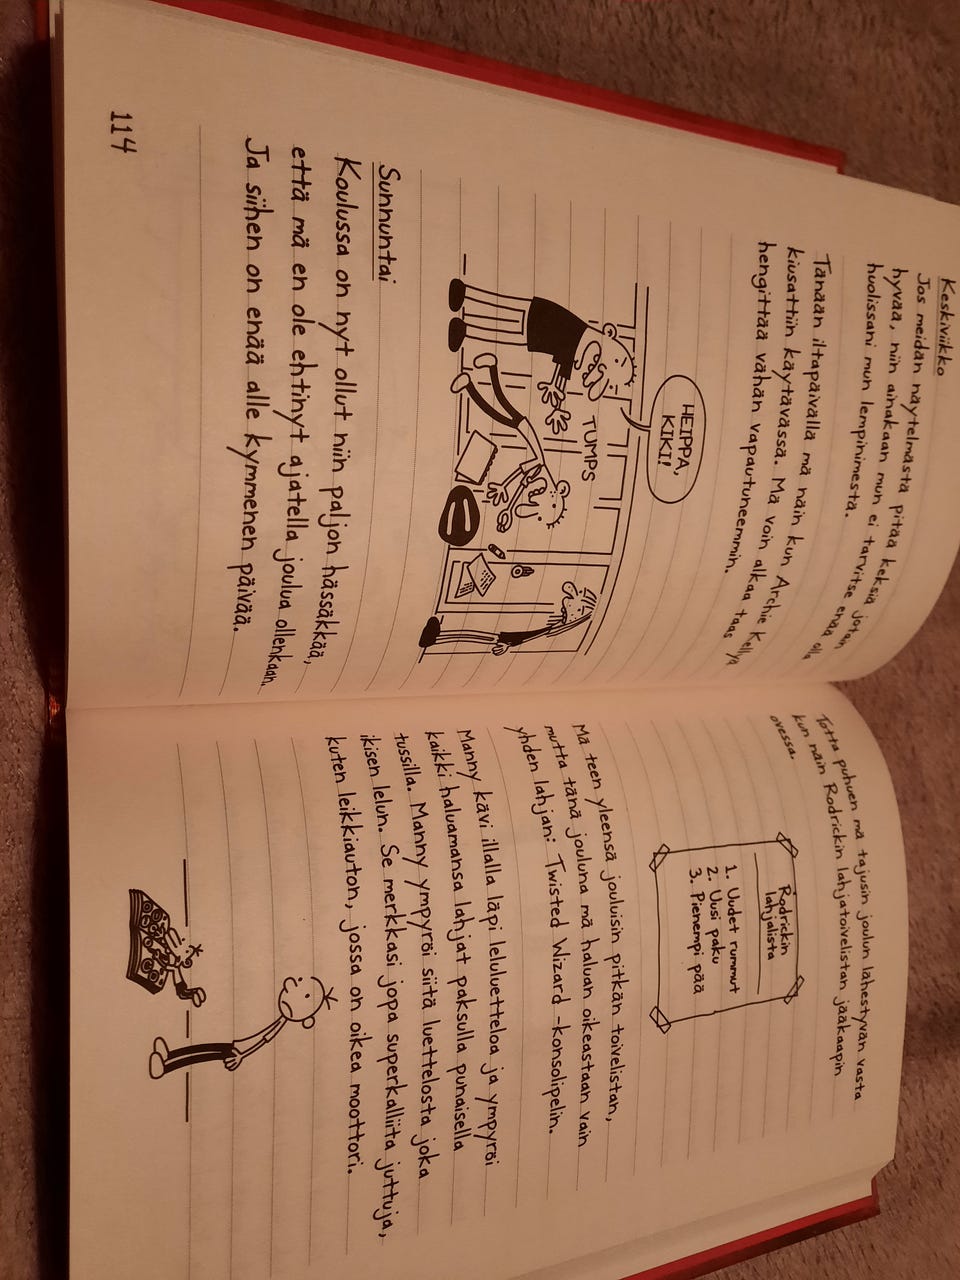 Keskiviikko
Jos meidän näytelmästä pitää keksiä jotain
hyvää, niin ainakaan mun ei tarvitse enää olla
huolissani mun lempinimestä.
Tänään iltapäivällä mä näin kun Archie Kellyä
kiusattiin käytävässä. Mä voin alkaa taas
hengittää vähän vapautuneemmin.
HEIPPA,
KIKI!
TUMPS
Sunnuntai
Koulussa on nyt ollut niin paljon hässäkkää,
että mä en ole ehtinyt ajatella joulua ollenkaan.
Ja siihen on enää alle kymmenen päivää.
114
Totta puhuen mä tajusin joulun lähestyvän vasta
kun näin Rodrickin lahjatoivelistan jääkaapin
ovessa.
Rodrickin
lahjalista
1. Uudet rummut
2. Uusi paku
3. Pienempi pää
Mä teen yleensä jouluisin pitkän toivelistan,
mutta tänä jouluna mä haluan oikeastaan vain
yhden lahjan: Twisted Wizard -konsolipelin.
Manny kävi illalla läpi leluluetteloa ja ympyröi
kaikki haluamansa lahjat paksulla punaisella
tussilla. Manny ympyröi siitä luettelosta joka
ikisen lelun. Se merkkasi jopa superkalliita juttuja,
kuten leikkiauton, jossa on oikea moottori.